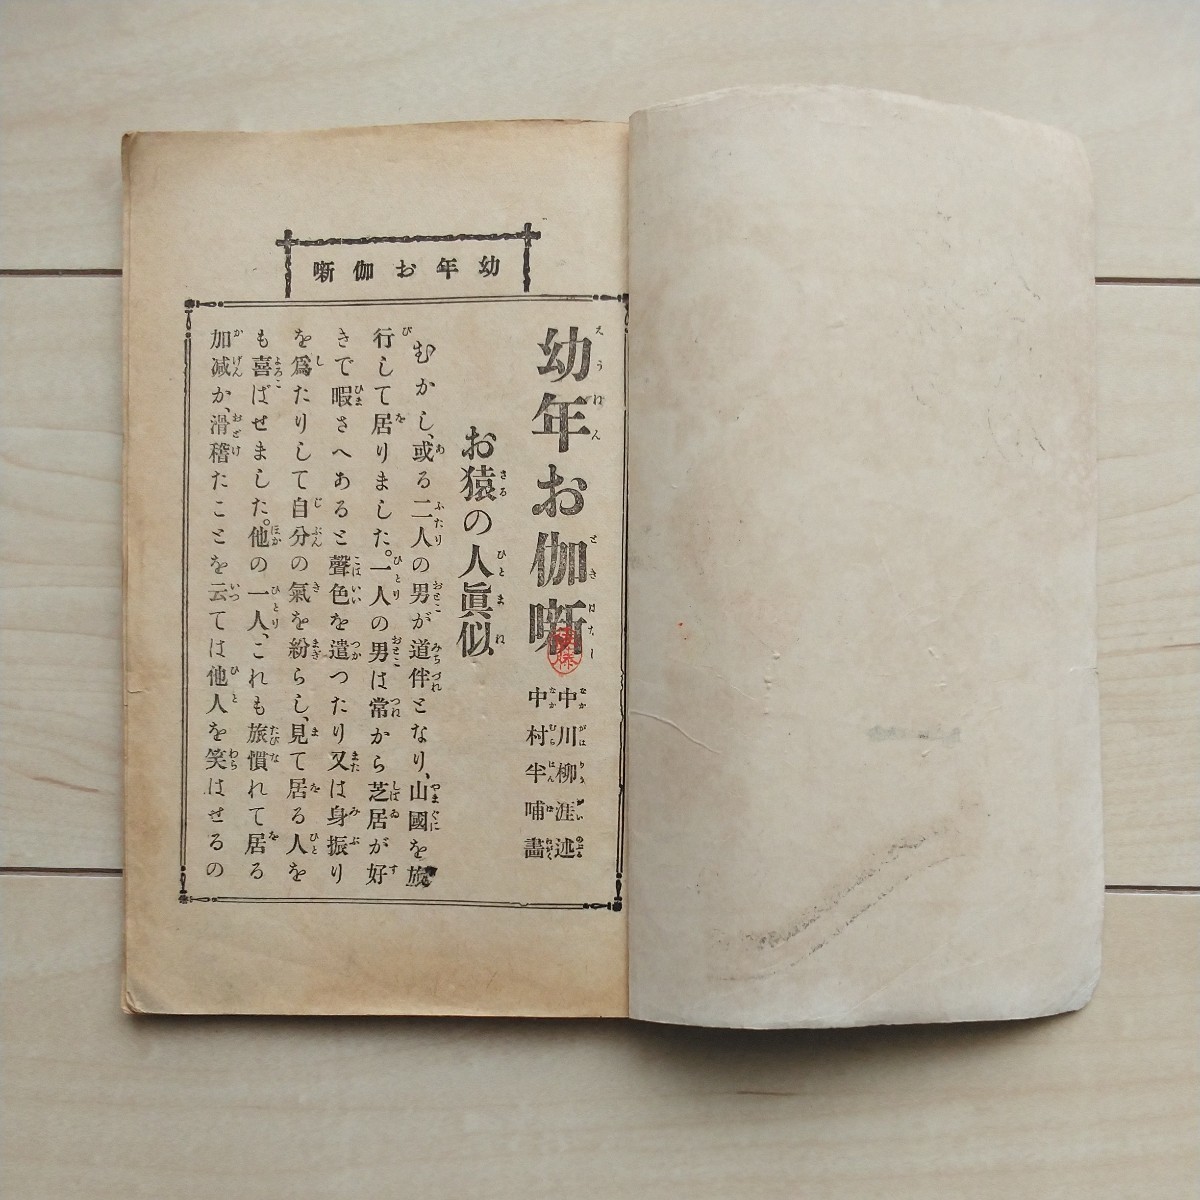 幼年お伽噺
幼年お伽噺
中川柳涯述
中村半哺畵
お猿の人眞似
むかし、或る二人の男が道伴となり、山國を旅
行して居りました。一人の男は常から芝居が好
きで暇さへあると聲色を遣つたり又は身振り
を爲たりして自分の氣を紛らし、見て居る人を
も喜ばせました。他の一人、これも旅慣れて居る
加减か、滑稽たことを云ては他人を笑はせるの